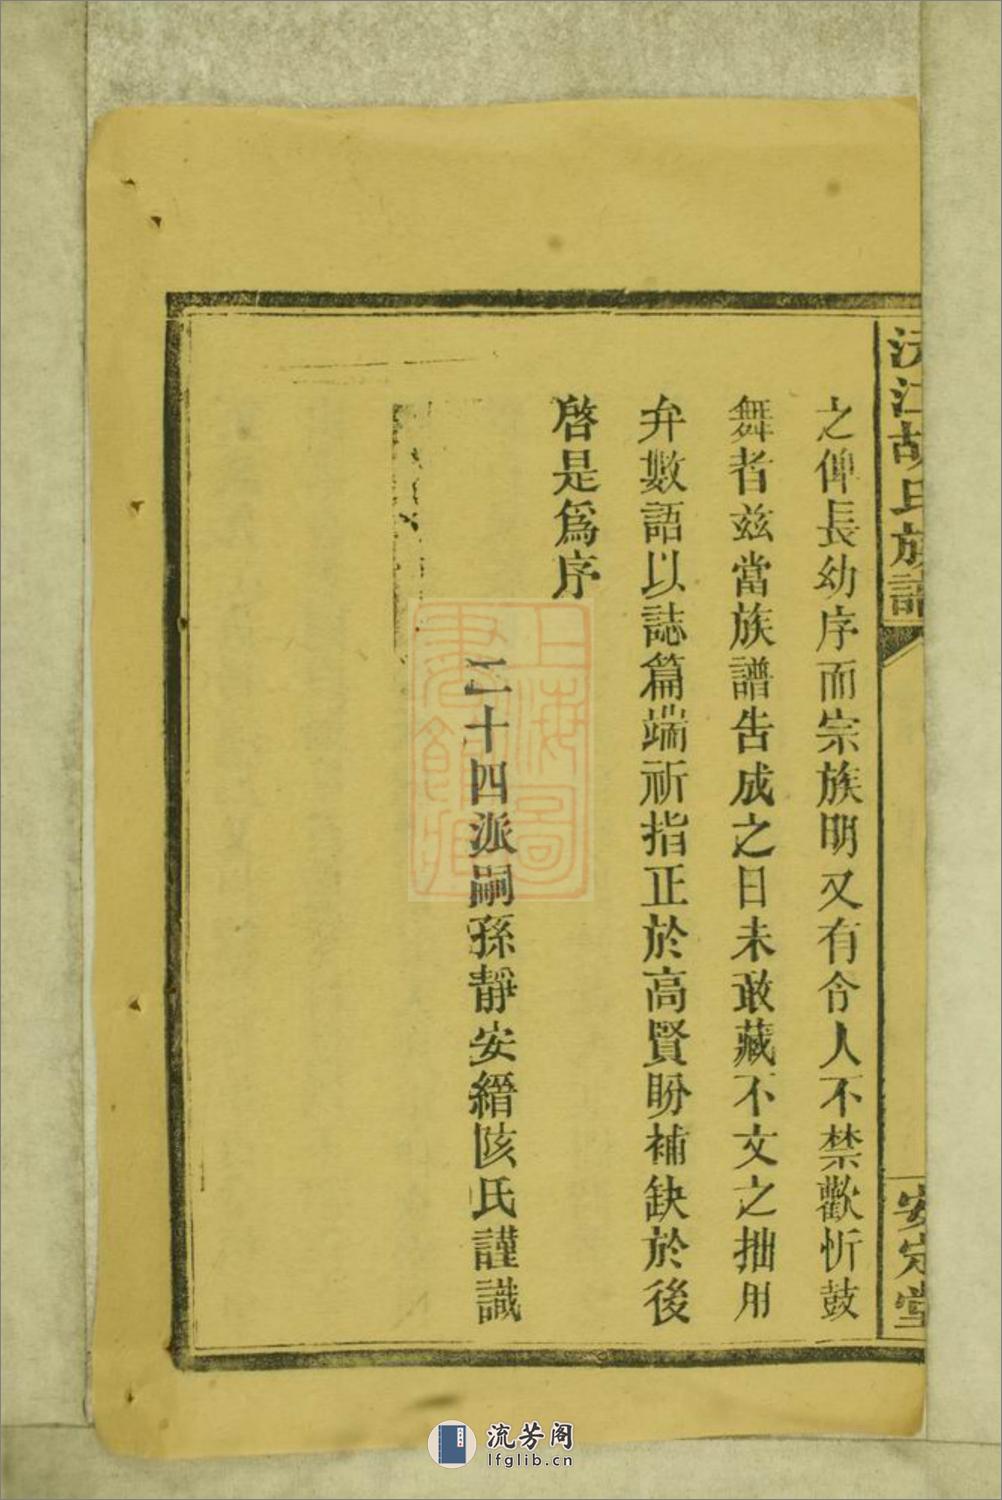 沅江胡氏族譜
安定堂
之俾長幼序而宗族明又有令人不禁歡忻鼓
舞者玆當族譜告成之日未敢藏不文之拙用
弁數語以誌篇端祈指正於高賢盼補缺於後
啓是爲序
二十四派嗣孫靜安縉陔氏謹識
上海圖書館藏
流芳阁
lfglib.cn